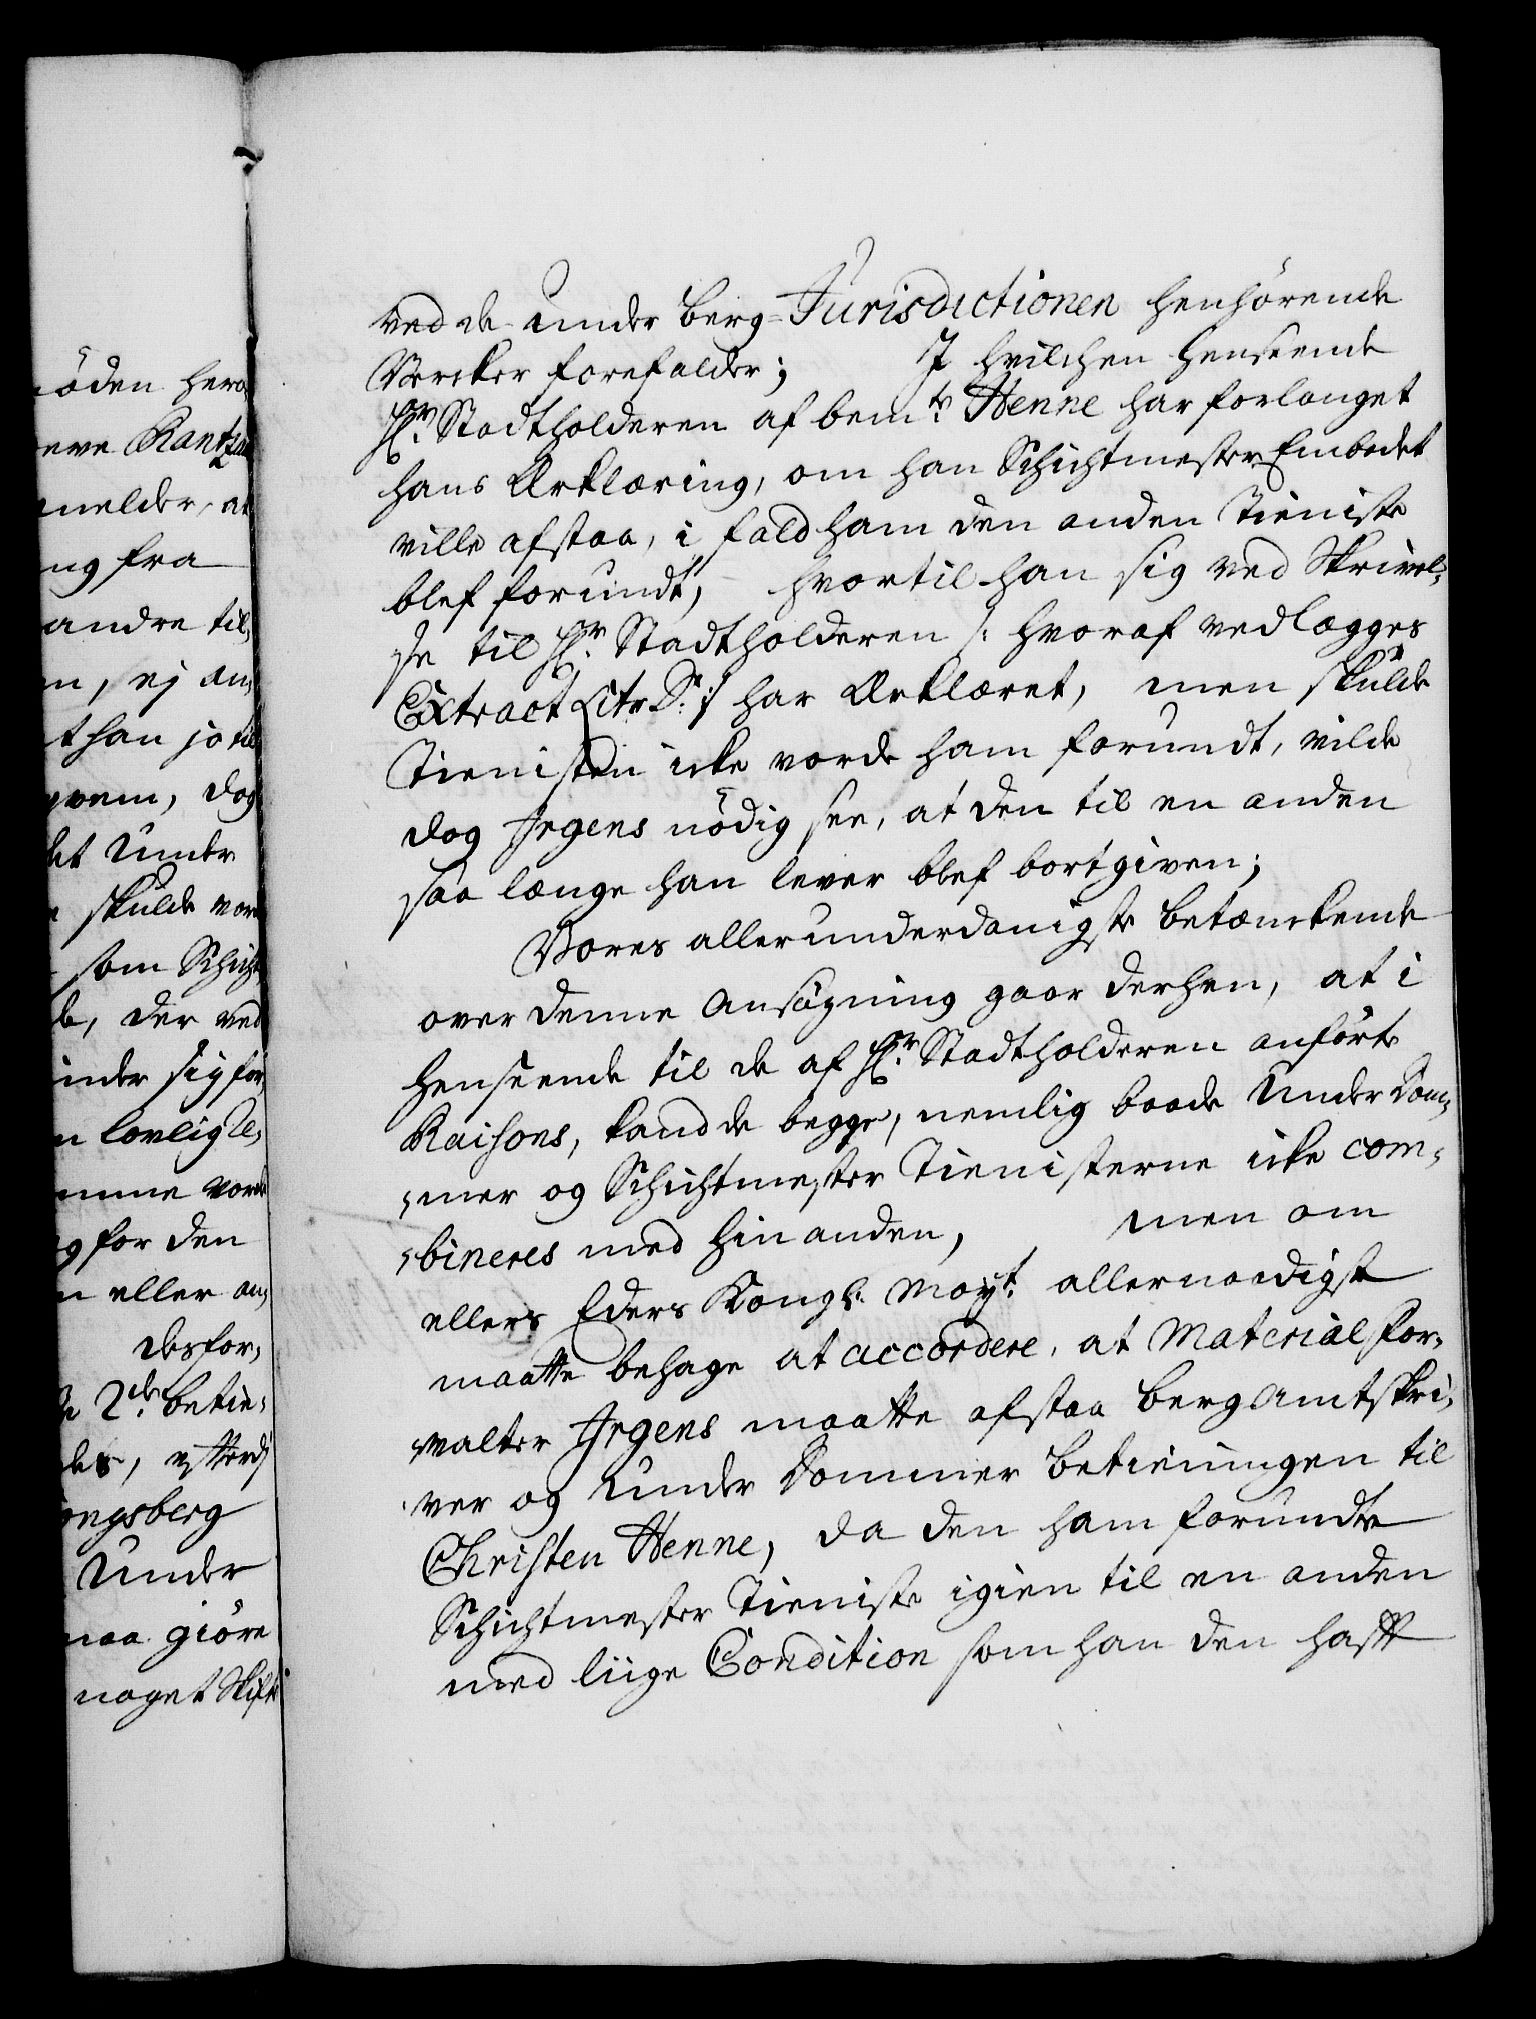 nöden hero
eve Rantzau
melder, at
ng fra
andre til,
n, ej an,
t han jo til
dog
et Under
skulde vor
som Schicht
der ved
inder sig for
n lovlig
mme vorde
g for den
n eller an,
desfor,
2de betie,
des,
ongsberg
Under
maa giöre
noget Skifte
ved de under Berg-Jurisdictionen henhörende
Vercker forefalder; I hvilchen henseende
Hr. Stadtholderen af bemte Henne har forlanget
hans Erklæring, om han Schichtmester Embedet
ville afstaa, i fald ham den anden Tieniste
blef forundt, hvortil han sig ved Skrivel,
se til Hr. Stadtholderen /: hvoraf vedlægges
Extract Litr. D :/ har Erklæret, men skulde
Tienisten icke vorde ham forundt, vilde
dog Irgens nödig see, at den til en anden
saa længe han lever blef bortgiven;
Vores allerunderdanigste betænckende
over denne Ansögning gaar derhen, at i
henseende til de af Hr. Stadtholderen anförte
Raisons, kand de begge, nemlig baade Under Dom,
,mer og Schichtmester Tienisterne icke com,
,bineres med hinanden, men om
ellers Eders Kongl. Mayt. allernaadigst
maatte behage at accordere, at Material for,
,valter Irgens maatte afstaa BergAmtskri,
,ver og Under Dommer betieningen til
Christen Henne, da den ham forundte
Schichtmester Tieniste igien til en anden
med liige Condition som han den hafft